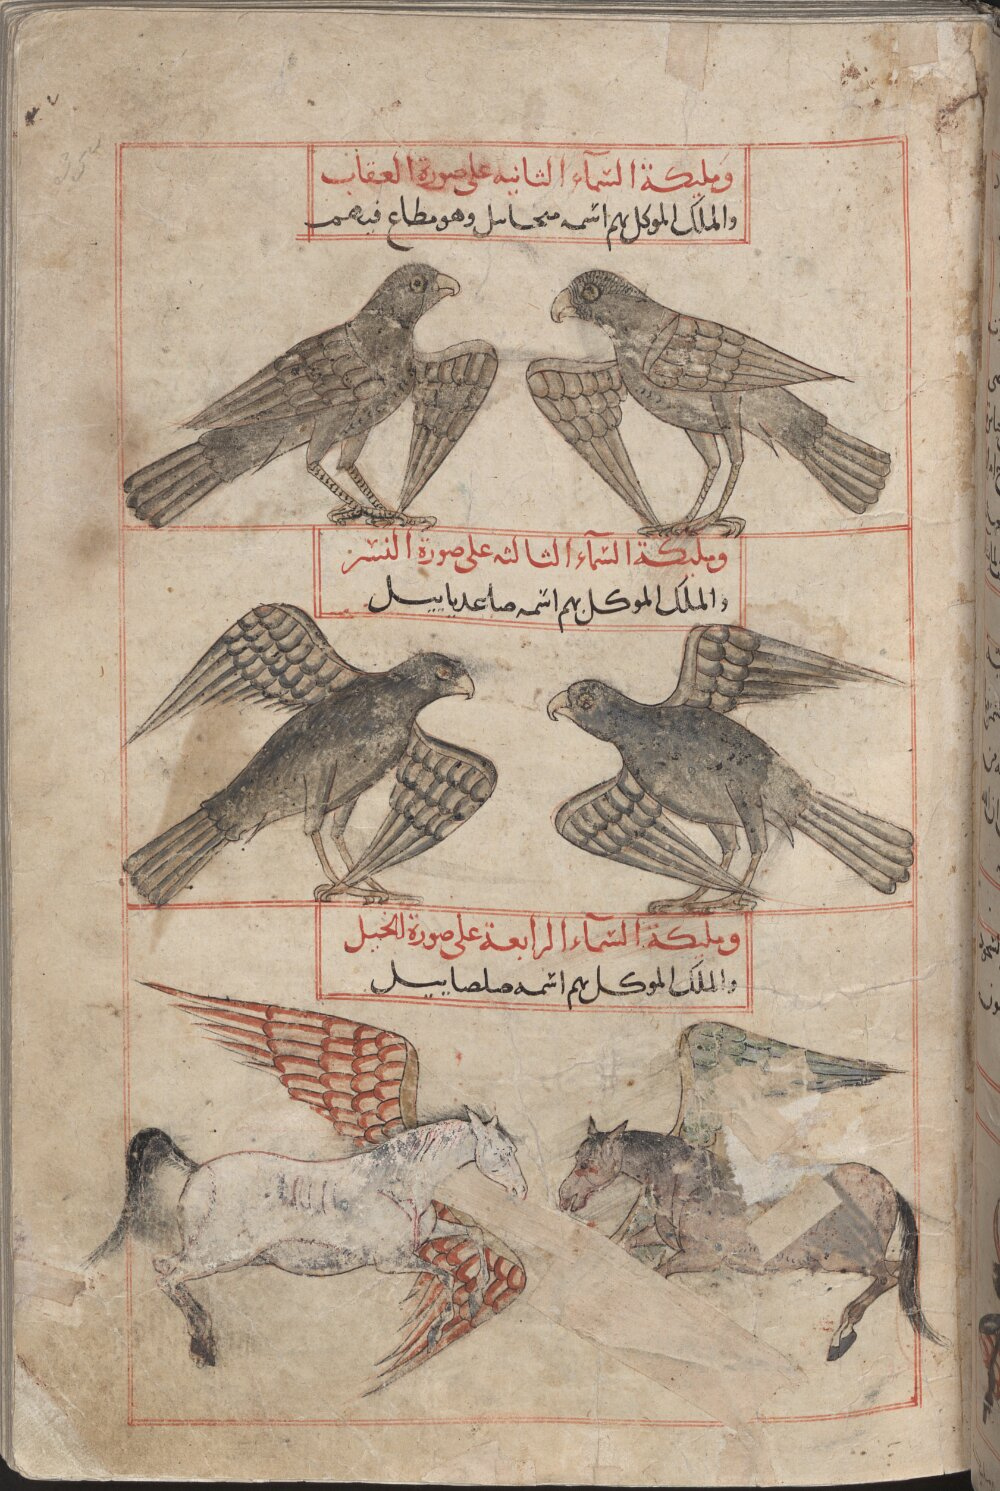 وملیكة السمآء الثانیه علی صورة العقاب
والملك الموكل بهم اسمه میحاییل وهو مطاع فیهم
وملیكة السمآء الثالثه علی صورة النسر
والملك الموكل بهم اسمه صاعدیاییل
وملیكة السمآء الرابعة علی صورة الخیل
والملك الموكل بهم اسمه صلصاییل